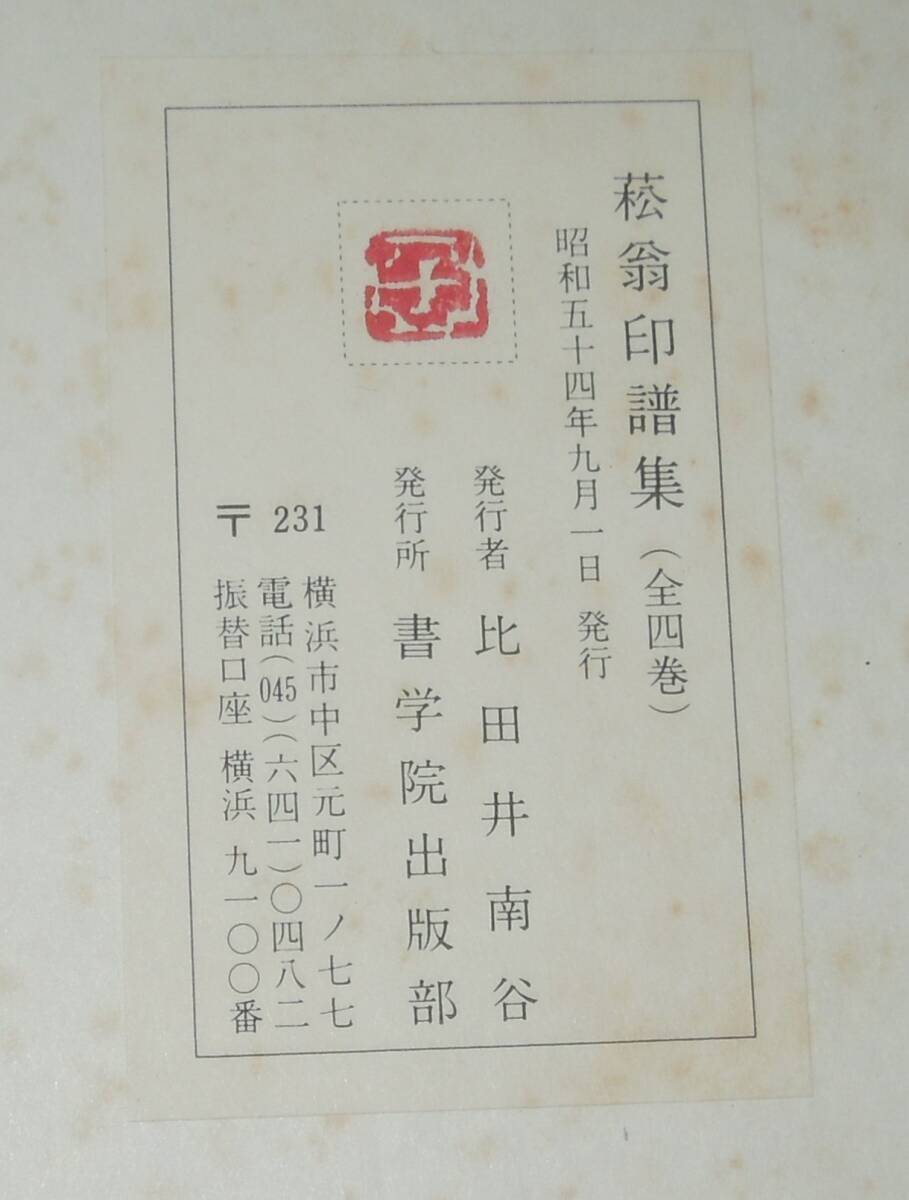 菘翁印譜集(全四巻)
昭和五十四年九月一日 発行
発行者 比田井南谷
発行所 書学院出版部
〒231 横浜市中区元町一ノ七七
電話(045)(六四一)〇四八二
振替口座 横浜 九一〇〇番